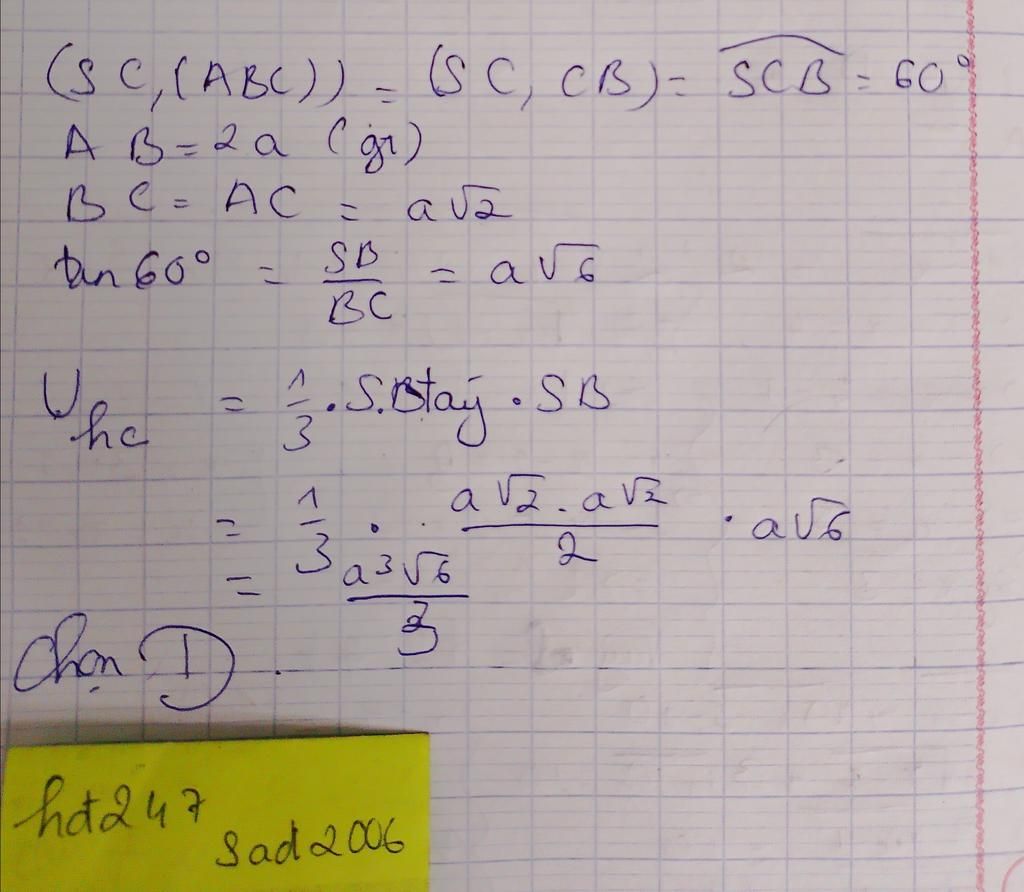 (SC, (ABC)) = (SC, CB) = SCB = 60°
AB = 2a (gt)
BC = AC = a√2
tan 60° = SB/BC = a√6
Vhc = 1/3 . S.Btaý . SB
= 1/3 . . a√2 . a√2/2 . a√6
= a³√6/3
Chọn D.
hdt247
sad2006